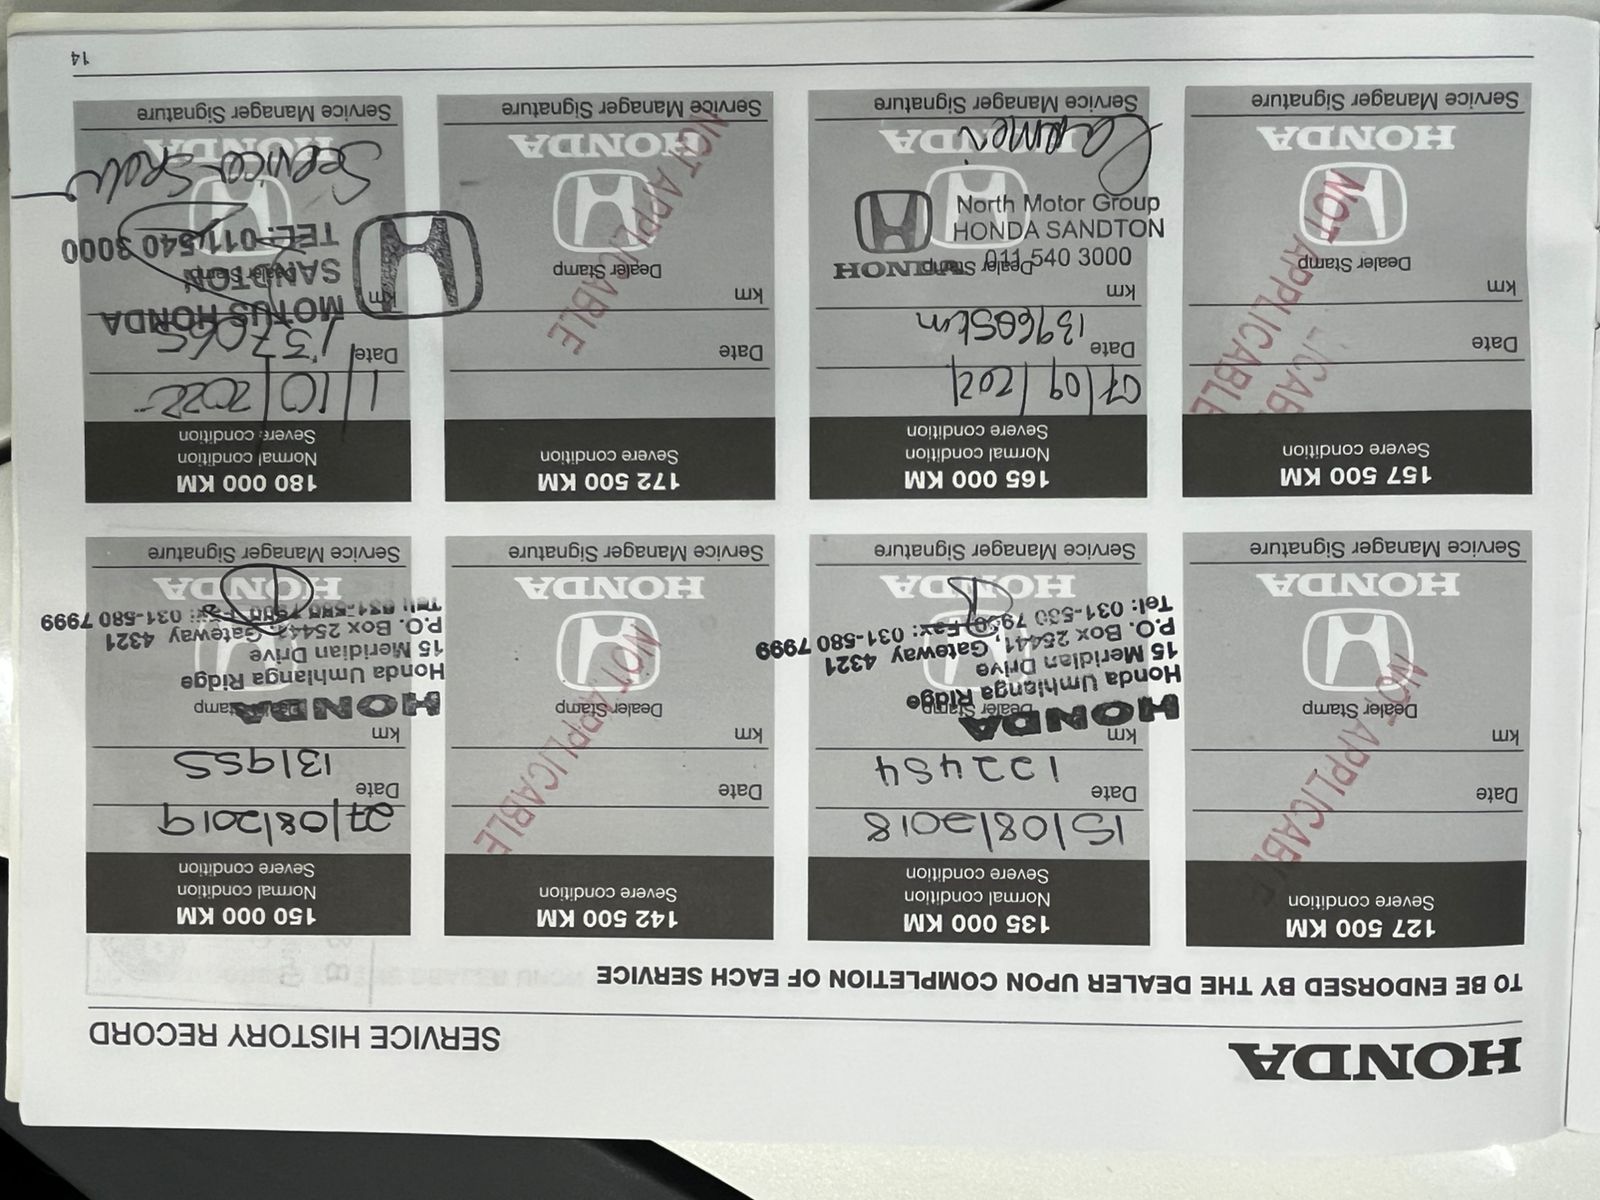 HONDA
SERVICE HISTORY RECORD
TO BE ENDORSED BY THE DEALER UPON COMPLETION OF EACH SERVICE
127 500 KM
Severe condition
Date
km
Dealer Stamp
NOT APPLICABLE
HONDA
Service Manager Signature
135 000 KM
Normal condition
Severe condition
15/08/2018
Date
122454
km
Dealer Stamp
HONDA
Honda Umhlanga Ridge
15 Meridian Drive
P.O. Box 25441, Gateway 4321
Tel: 031-580 7900 Fax: 031-580 7999
HONDA
Service Manager Signature
142 500 KM
Severe condition
Date
km
Dealer Stamp
NOT APPLICABLE
HONDA
Service Manager Signature
150 000 KM
Normal condition
Severe condition
27/08/2019
Date
131955
km
Dealer Stamp
HONDA
Honda Umhlanga Ridge
15 Meridian Drive
P.O. Box 25441, Gateway 4321
Tel: 031-580 7900 Fax: 031-580 7999
HONDA
Service Manager Signature
157 500 KM
Severe condition
Date
km
Dealer Stamp
NOT APPLICABLE
NOT APPLICABLE
HONDA
Service Manager Signature
165 000 KM
Normal condition
Severe condition
07/09/2021
Date
139605km
km
Dealer Stamp
North Motor Group
HONDA SANDTON
011 540 3000
HONDA
HONDA
Service Manager Signature
172 500 KM
Severe condition
Date
km
Dealer Stamp
NOT APPLICABLE
HONDA
Service Manager Signature
180 000 KM
Normal condition
Severe condition
1/10/2022
Date
157065
km
Dealer Stamp
MOTUS HONDA
SANDTON
TEL: 011 540 3000
HONDA
Service Manager Signature
14